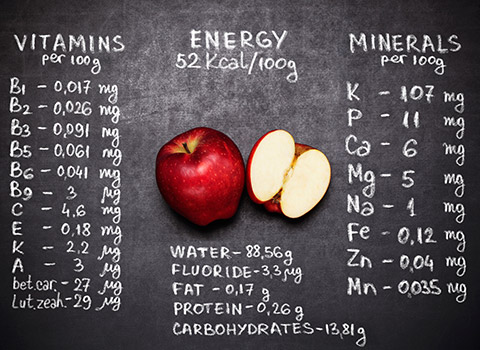 VITAMINS
per 100g
B1 - 0,017 mg
B2 - 0,026 mg
B3 - 0,091 mg
B5 - 0,061 mg
B6 - 0,041 mg
B9 - 3 µg
C - 4,6 mg
E - 0,18 mg
K - 2,2 µg
A - 3 µg
bet.car. - 27 µg
Lut.zeah. - 29 µg
ENERGY
52 Kcal/100g
WATER - 88,56g
FLUORIDE - 3,3 µg
FAT - 0,17 g
PROTEIN - 0,26 g
CARBOHYDRATES - 13,81g
MINERALS
per 100g
K - 107 mg
P - 11 mg
Ca - 6 mg
Mg - 5 mg
Na - 1 mg
Fe - 0,12 mg
Zn - 0,04 mg
Mn - 0,035 mg